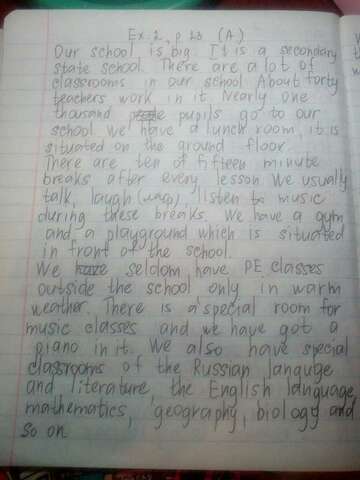 Ex. 2, p 28 (A)
Our school is big. It is a secondary
state school. There are a lot of
classrooms in our school About forty
teachers work in it. Nearly one
thousand pupils go to our
school We have a lunch room, it is
situated on the ground floor.
There are ten of fifteen minute
breaks after every lesson We usually
talk, laugh ( ), listen to music
during these breaks. We have a gym
and a playground which is situated
in front of the school.
We have seldom have PE classes
outside the school only in warm
weather. There is a special room for
music classes and we have got a
piano in it. We also have special
classrooms of the Russian languge
and literature, the English language,
mathematics, geography, biology and
so on